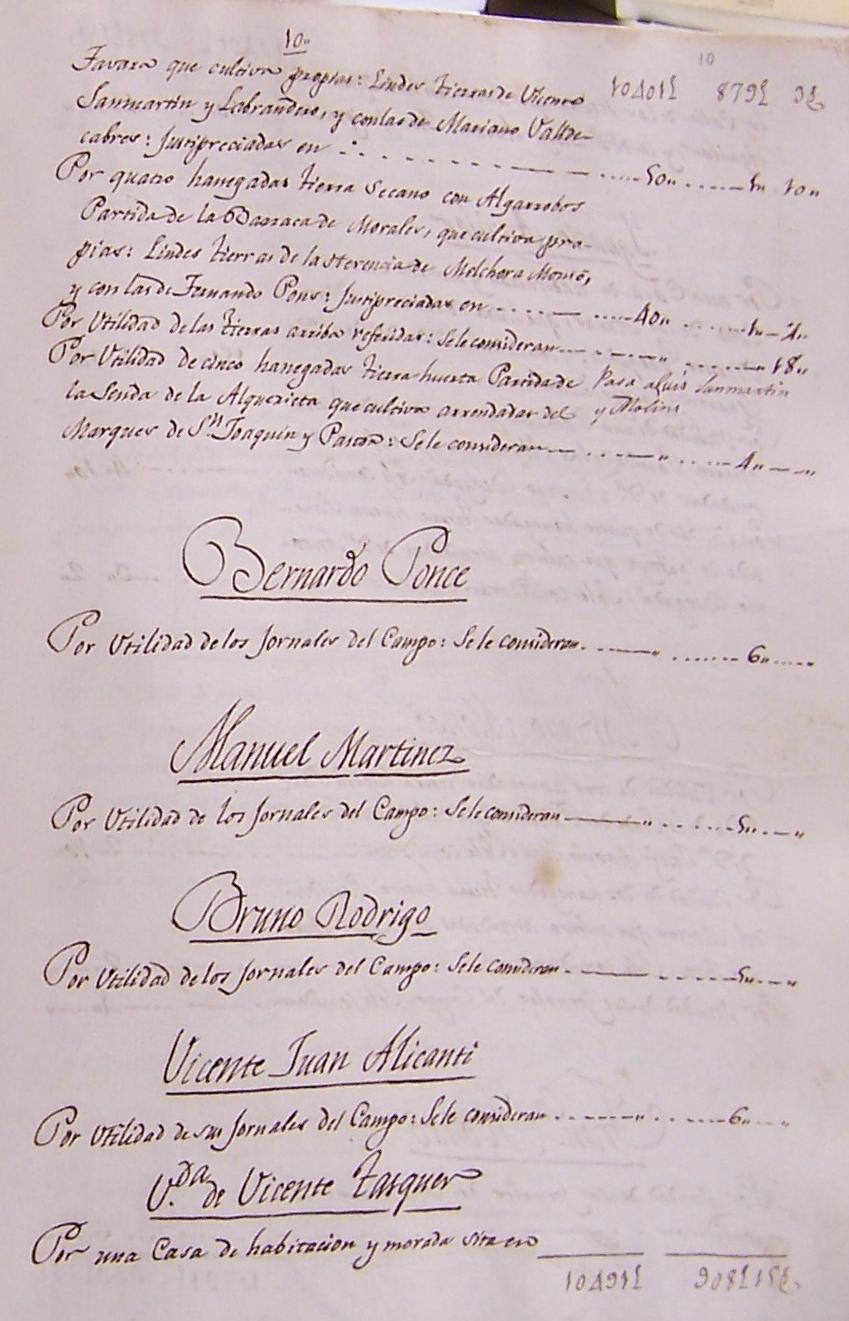 10„
10
Favara que cultiva propias: Lindes tierras de Vicente 10401£ 879£ 9§
Sanmartin y Lebrandero, y con las de Mariano Vallde-
cabres: Justipreciadas en . . . . . . . 50„ . . . . . 1„ 10„
Por quatro hanegadas tierra Secano con Algarrobos
Partida de la Barraca de Morales, que cultiva pro-
pias: Lindes tierras de la Herencia de Melchora Monsó,
y con las de Fernando Pons: Justipreciadas en . . . . . 40„ . . . . . 1„ 4„
Por Utilidad de las tierras arriba referidas: Se le consideran — . . . „ . . . . . 18„
Por Utilidad de cinco hanegadas tierra huerta Partida de Pasa a Luis Sanmartin
la Senda de la Alquerieta que cultiva arrendadas del y Molins
Marques de Sn. Joaquin y Pastor: Se le consideran — . . . . „ . . . . 4„ — „
Bernardo Ponce
Por Utilidad de los Jornales del Campo: Se le consideran. — „ . . . . . . 6„ . . . „
Manuel Martinez
Por Utilidad de los Jornales del Campo: Se le consideran — „ . . . . . 5„ . — „
Bruno Rodrigo
Por Utilidad de los Jornales del Campo: Se le consideran. — „ . . . . . 5„ . — „
Vicente Juan Alicanti
Por Utilidad de sus Jornales del Campo: Se le consideran . . . . „ . . . . . 6„ . . . „
V.da de Vicente Tasquer
Por una Casa de habitacion y morada sita en
10491£ 908£15§